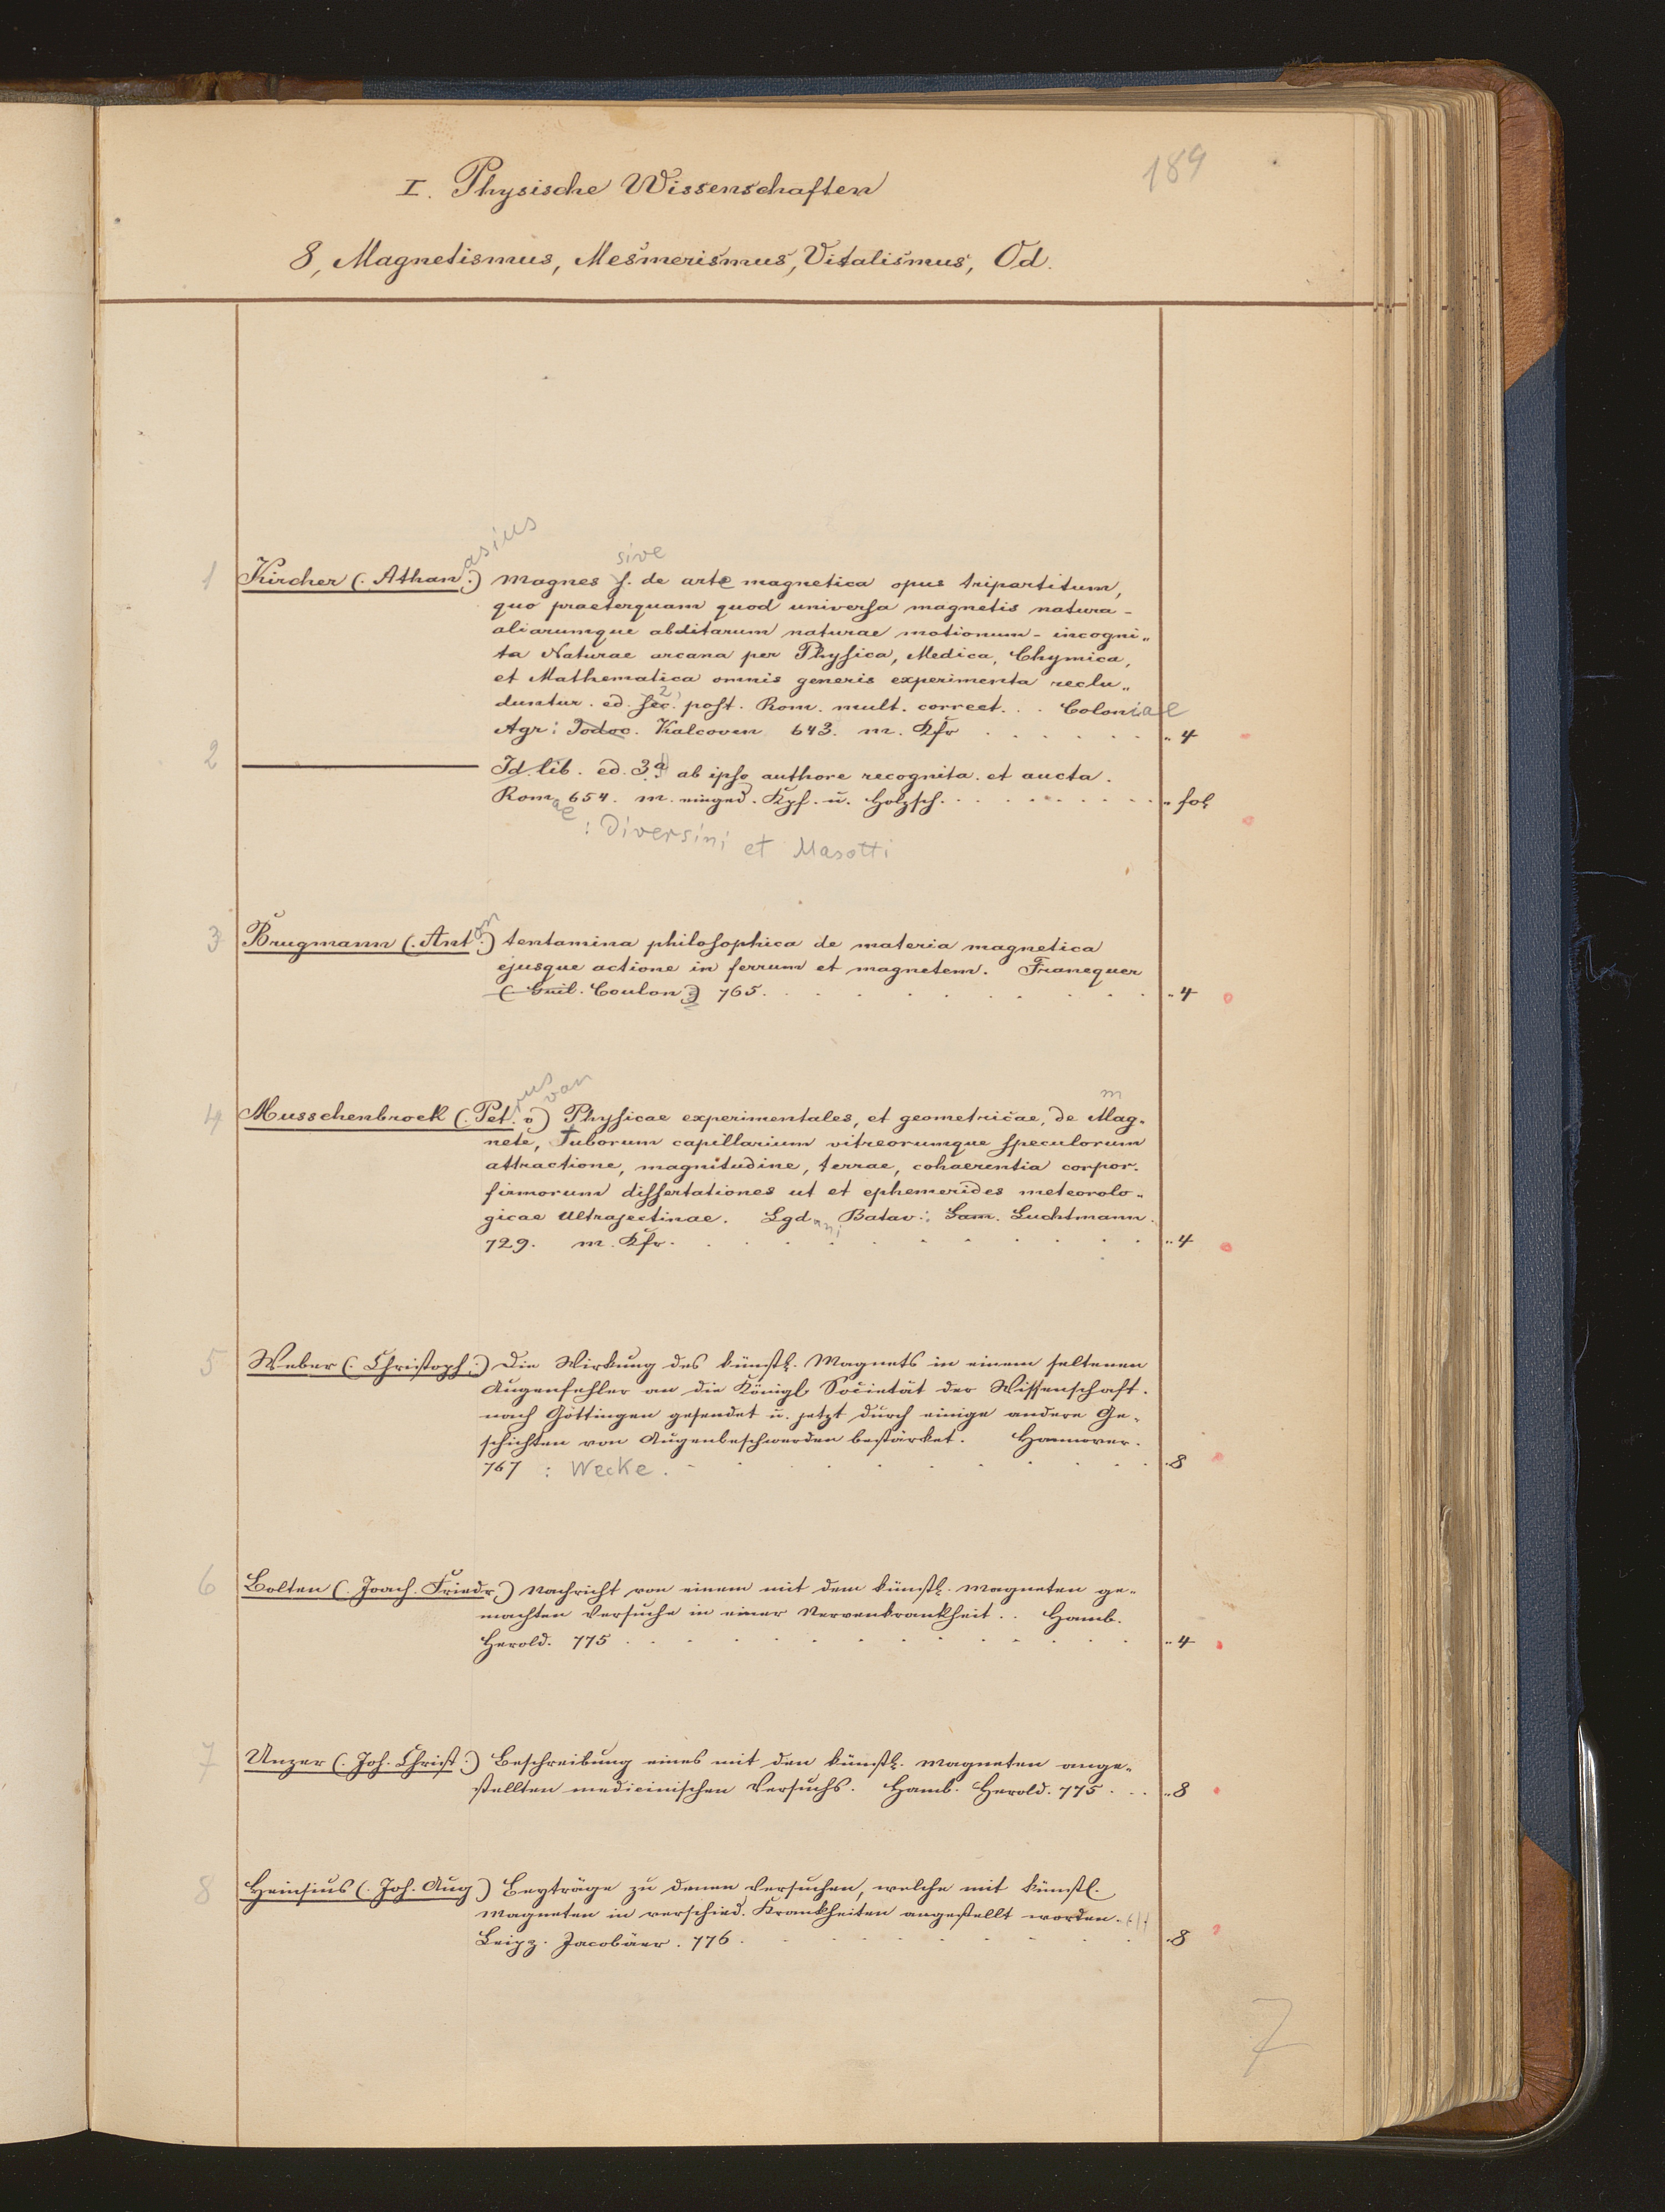 189
I. Physische Wissenschaften
8, Magnetismus, Mesmerismus, Vitalismus, Od.
asius
sive
1 Kircher (. Athan.) Magnes s. de arte magnetica opus tripartitum,
quo praeterquam quod universa magnetis natura -
aliarumque abditarum naturae motionum - incogni„
ta Naturae arcana per Physica, Medica, Chymica,
et Mathematica omnis generis experimenta reclu„
duntur. ed. sec. 2 post. Rom. mult. correct. . . Coloniae
Agr: Jodoc. Kalcoven 643. m. Kfr . . . . . . „ 4
2 Id. lib. ed. 3a ab ipso authore recognita et aucta.
Romae 654. m. einged. Kpf. u. Holzsch. . . . . . . . . . „ fol
: Diversini et Masotti
3 Brugmann (. Anton.) tentamina philosophica de materia magnetica
ejusque actione in ferrum et magnetem. Franequer
(Guil. Coulon) 765. . . . . . . . . „ 4
rus van
m
4 Musschenbroek (. Pet. v) Physicae experimentales, et geometricae, de Mag„
nete, Tuborum capillarium vitreorumque speculorum
attractione, magnitudine, terrae, cohaerentia corpor.
firmorum dissertationes ut et ephemerides meteorolo„
gicae Ultrajectinae. Lgd. ani Batav: Sam. Luchtmann.
729. m. Kfr. . . . . . . . . . „ 4
5 Weber (. Christoph:) Die Wirkung des künstl. Magnets in einem seltenen
Augenfehler an die Königl. Societät der Wissenschaft.
nach Göttingen gesendet u. jetzt durch einige andere Ge„
schichten von Augenbeschwerden bestärket. Hannover.
767 : Wecke. . . . . . . . . 8
6 Bolten (. Joach. Friedr.) Nachricht von einem mit dem künstl. Magneten ge„
machten Versuche in einer Nervenkrankheit. . Hamb.
Herold. 775 . . . . . . . . . . . „ 4
7 Unzer (. Joh. Christ:) Beschreibung eines mit den künstl. Magneten ange„
stellten medicinischen Versuchs. Hamb. Herold. 775. . . „ 8
8 Heinsius (. Joh. Aug) Beyträge zu denen Versuchen, welche mit künstl.
Magneten in verschied. Krankheiten angestellt worden.
Leipz. Jacobäer. 776. . . . . . . . . . 8
7